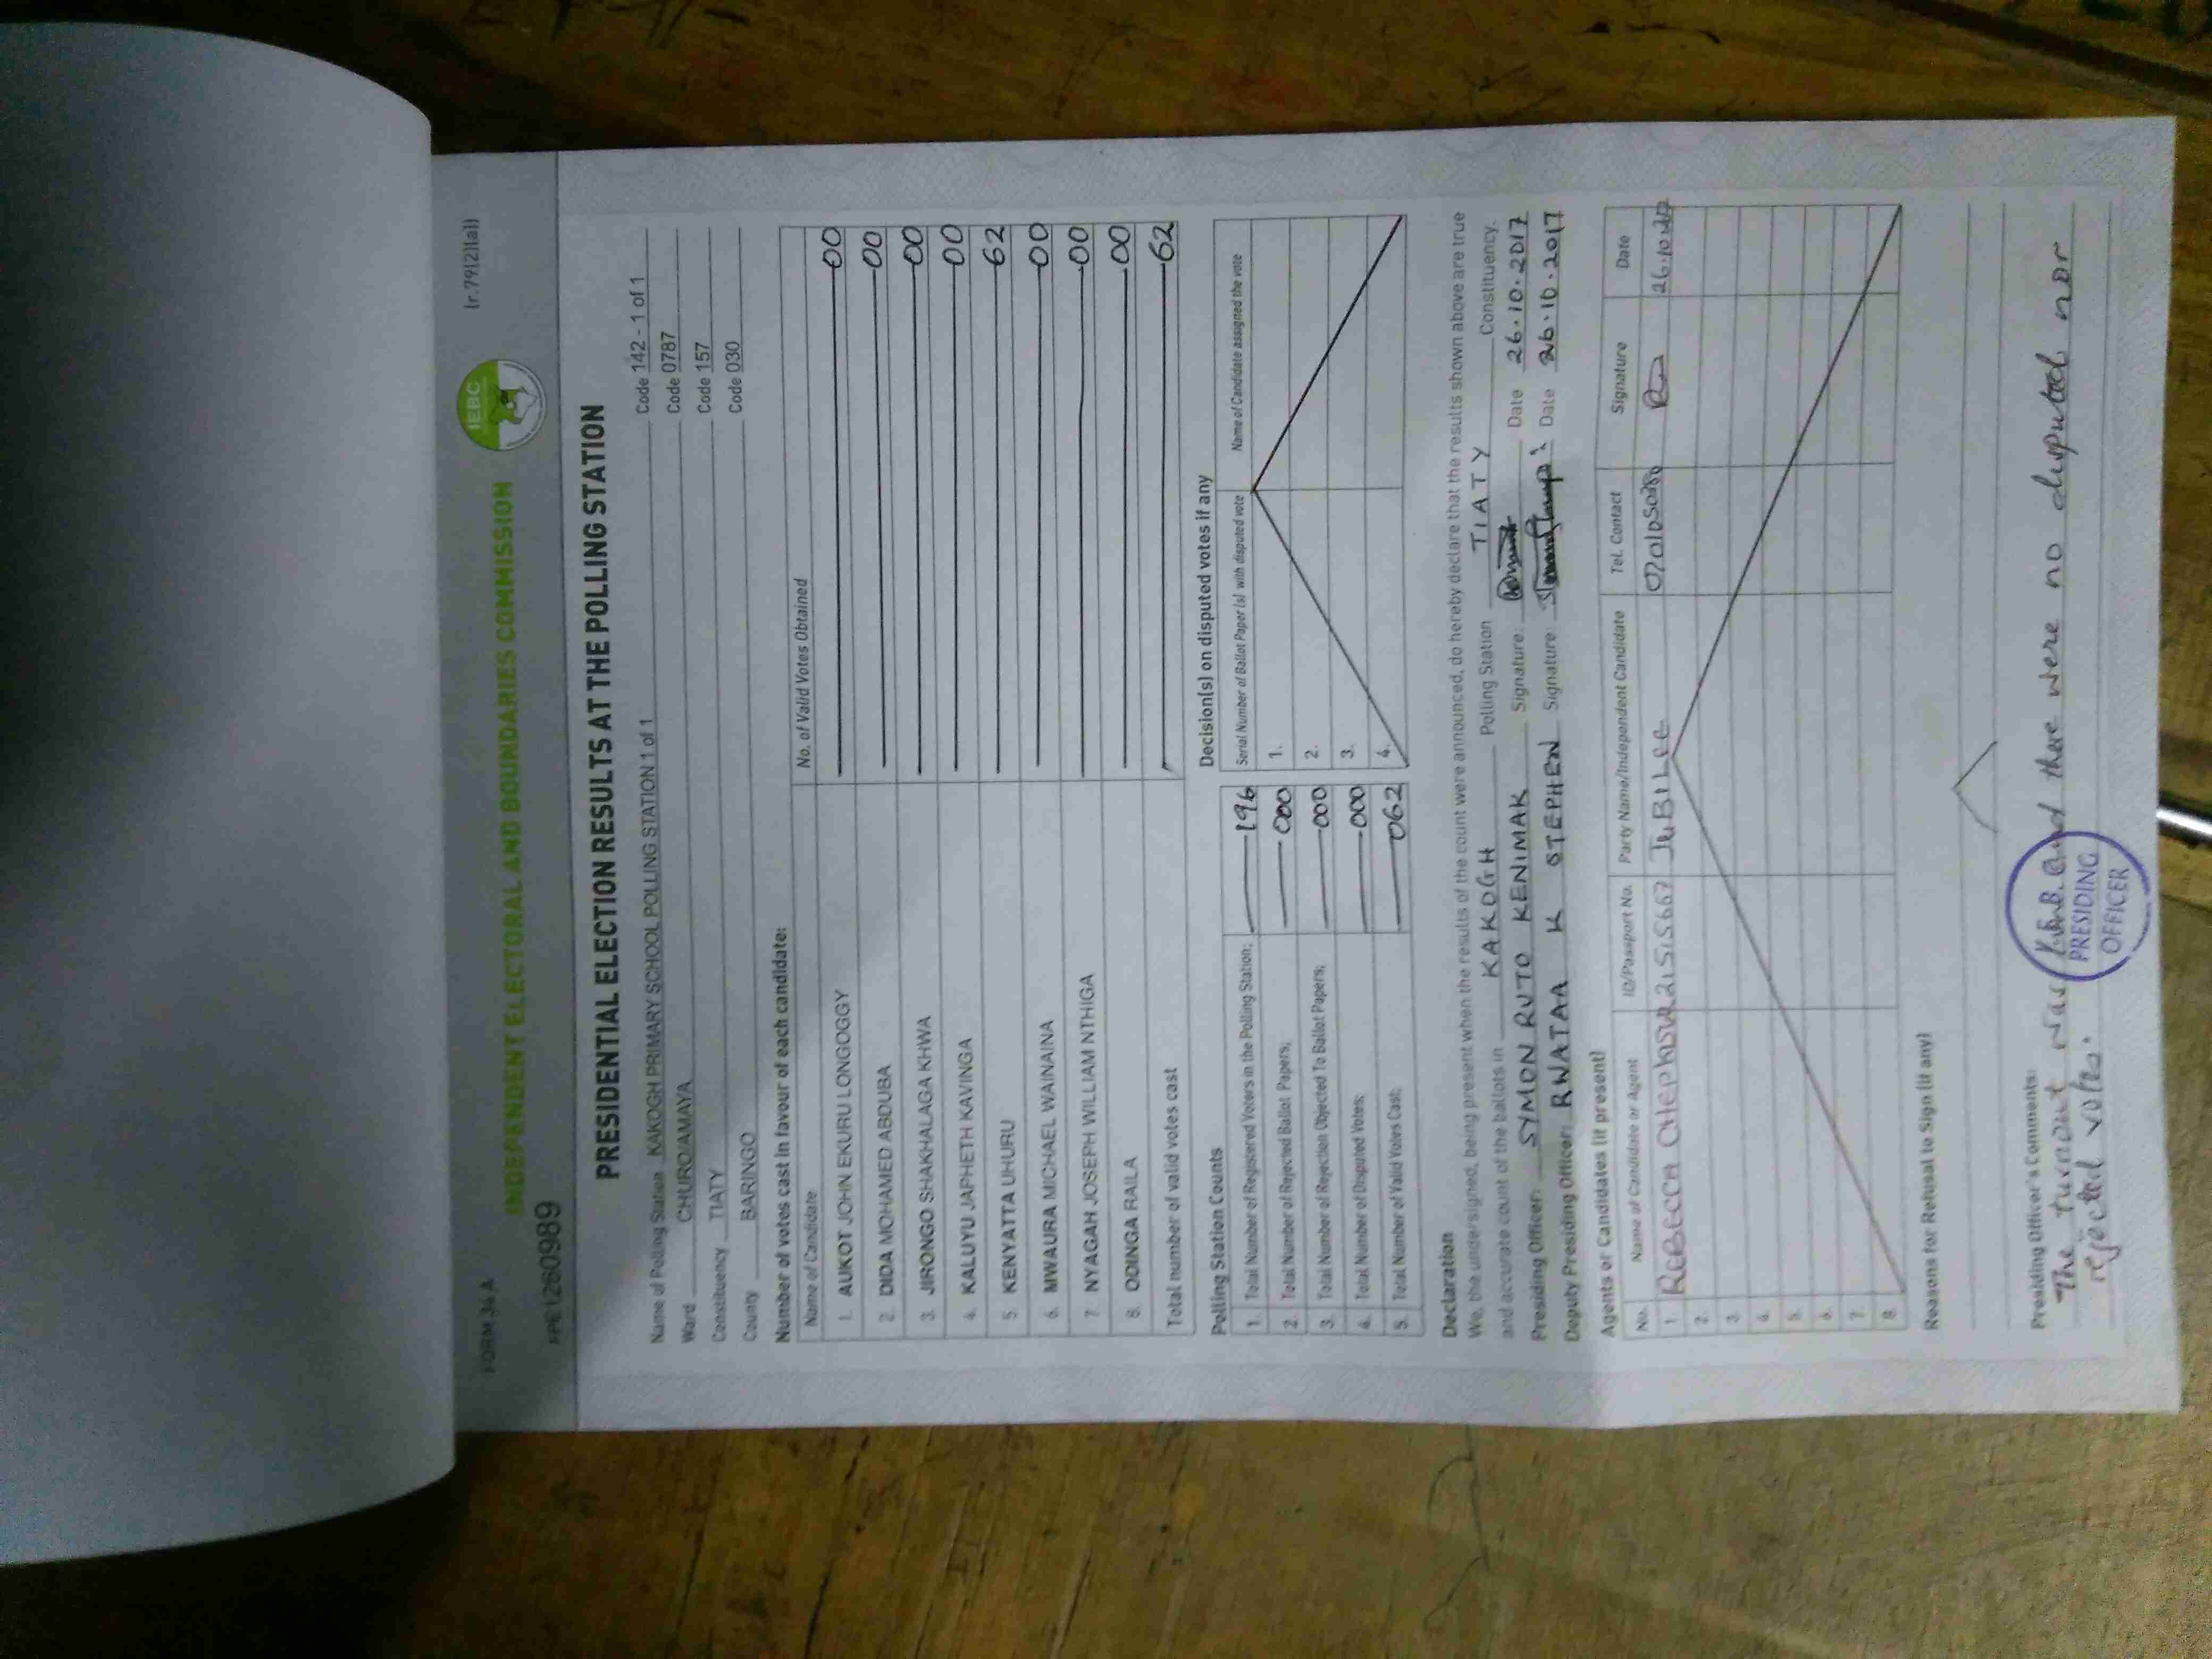 FORM 34 A (r.79(2)(a))
INDEPENDENT ELECTORAL AND BOUNDARIES COMMISSION
IEBC
PRE1260989
PRESIDENTIAL ELECTION RESULTS AT THE POLLING STATION
Name of Polling Station KAKOGH PRIMARY SCHOOL POLLING STATION 1 of 1 Code 142 - 1 of 1
Ward CHURO/AMAYA Code 0787
Constituency TIATY Code 157
County BARINGO Code 030
Number of votes cast in favour of each candidate:
Name of Candidate No. of Valid Votes Obtained
1. AUKOT JOHN EKURU LONGOGGY 00
2. DIDA MOHAMED ABDUBA 00
3. JIRONGO SHAKHALAGA KHWA 00
4. KALUYU JAPHETH KAVINGA 00
5. KENYATTA UHURU 62
6. MWAURA MICHAEL WAINAINA 00
7. NYAGAH JOSEPH WILLIAM NTHIGA 00
8. ODINGA RAILA 00
Total number of valid votes cast 62
Polling Station Counts
1. Total Number of Registered Voters in the Polling Station; 196
2. Total Number of Rejected Ballot Papers; 000
3. Total Number of Rejection Objected To Ballot Papers; 000
4. Total Number of Disputed Votes; 000
5. Total Number of Valid Votes Cast; 062
Decision(s) on disputed votes if any
Serial Number of Ballot Paper (s) with disputed vote Name of Candidate assigned the vote
1.
2.
3.
4.
Declaration
We, the undersigned, being present when the results of the count were announced, do hereby declare that the results shown above are true
and accurate count of the ballots in KAKOGH Polling Station TIATY Constituency.
Presiding Officer: SYMON RUTO KENIMAK Signature: Date 26.10.2017
Deputy Presiding Officer: RWATAA K STEPHEN Signature: Date 26.10.2017
Agents or Candidates (if present)
No. Name of Candidate or Agent ID/Passport No. Party Name/Independent Candidate Tel. Contact Signature Date
1. REBECCA JUBILEE
2.
3.
4.
5.
6.
7.
8.
Reasons for Refusal to Sign (if any)
Presiding Officer's Comments:
The turnout was and there were no disputed nor
rejected votes.
PRESIDING
OFFICER